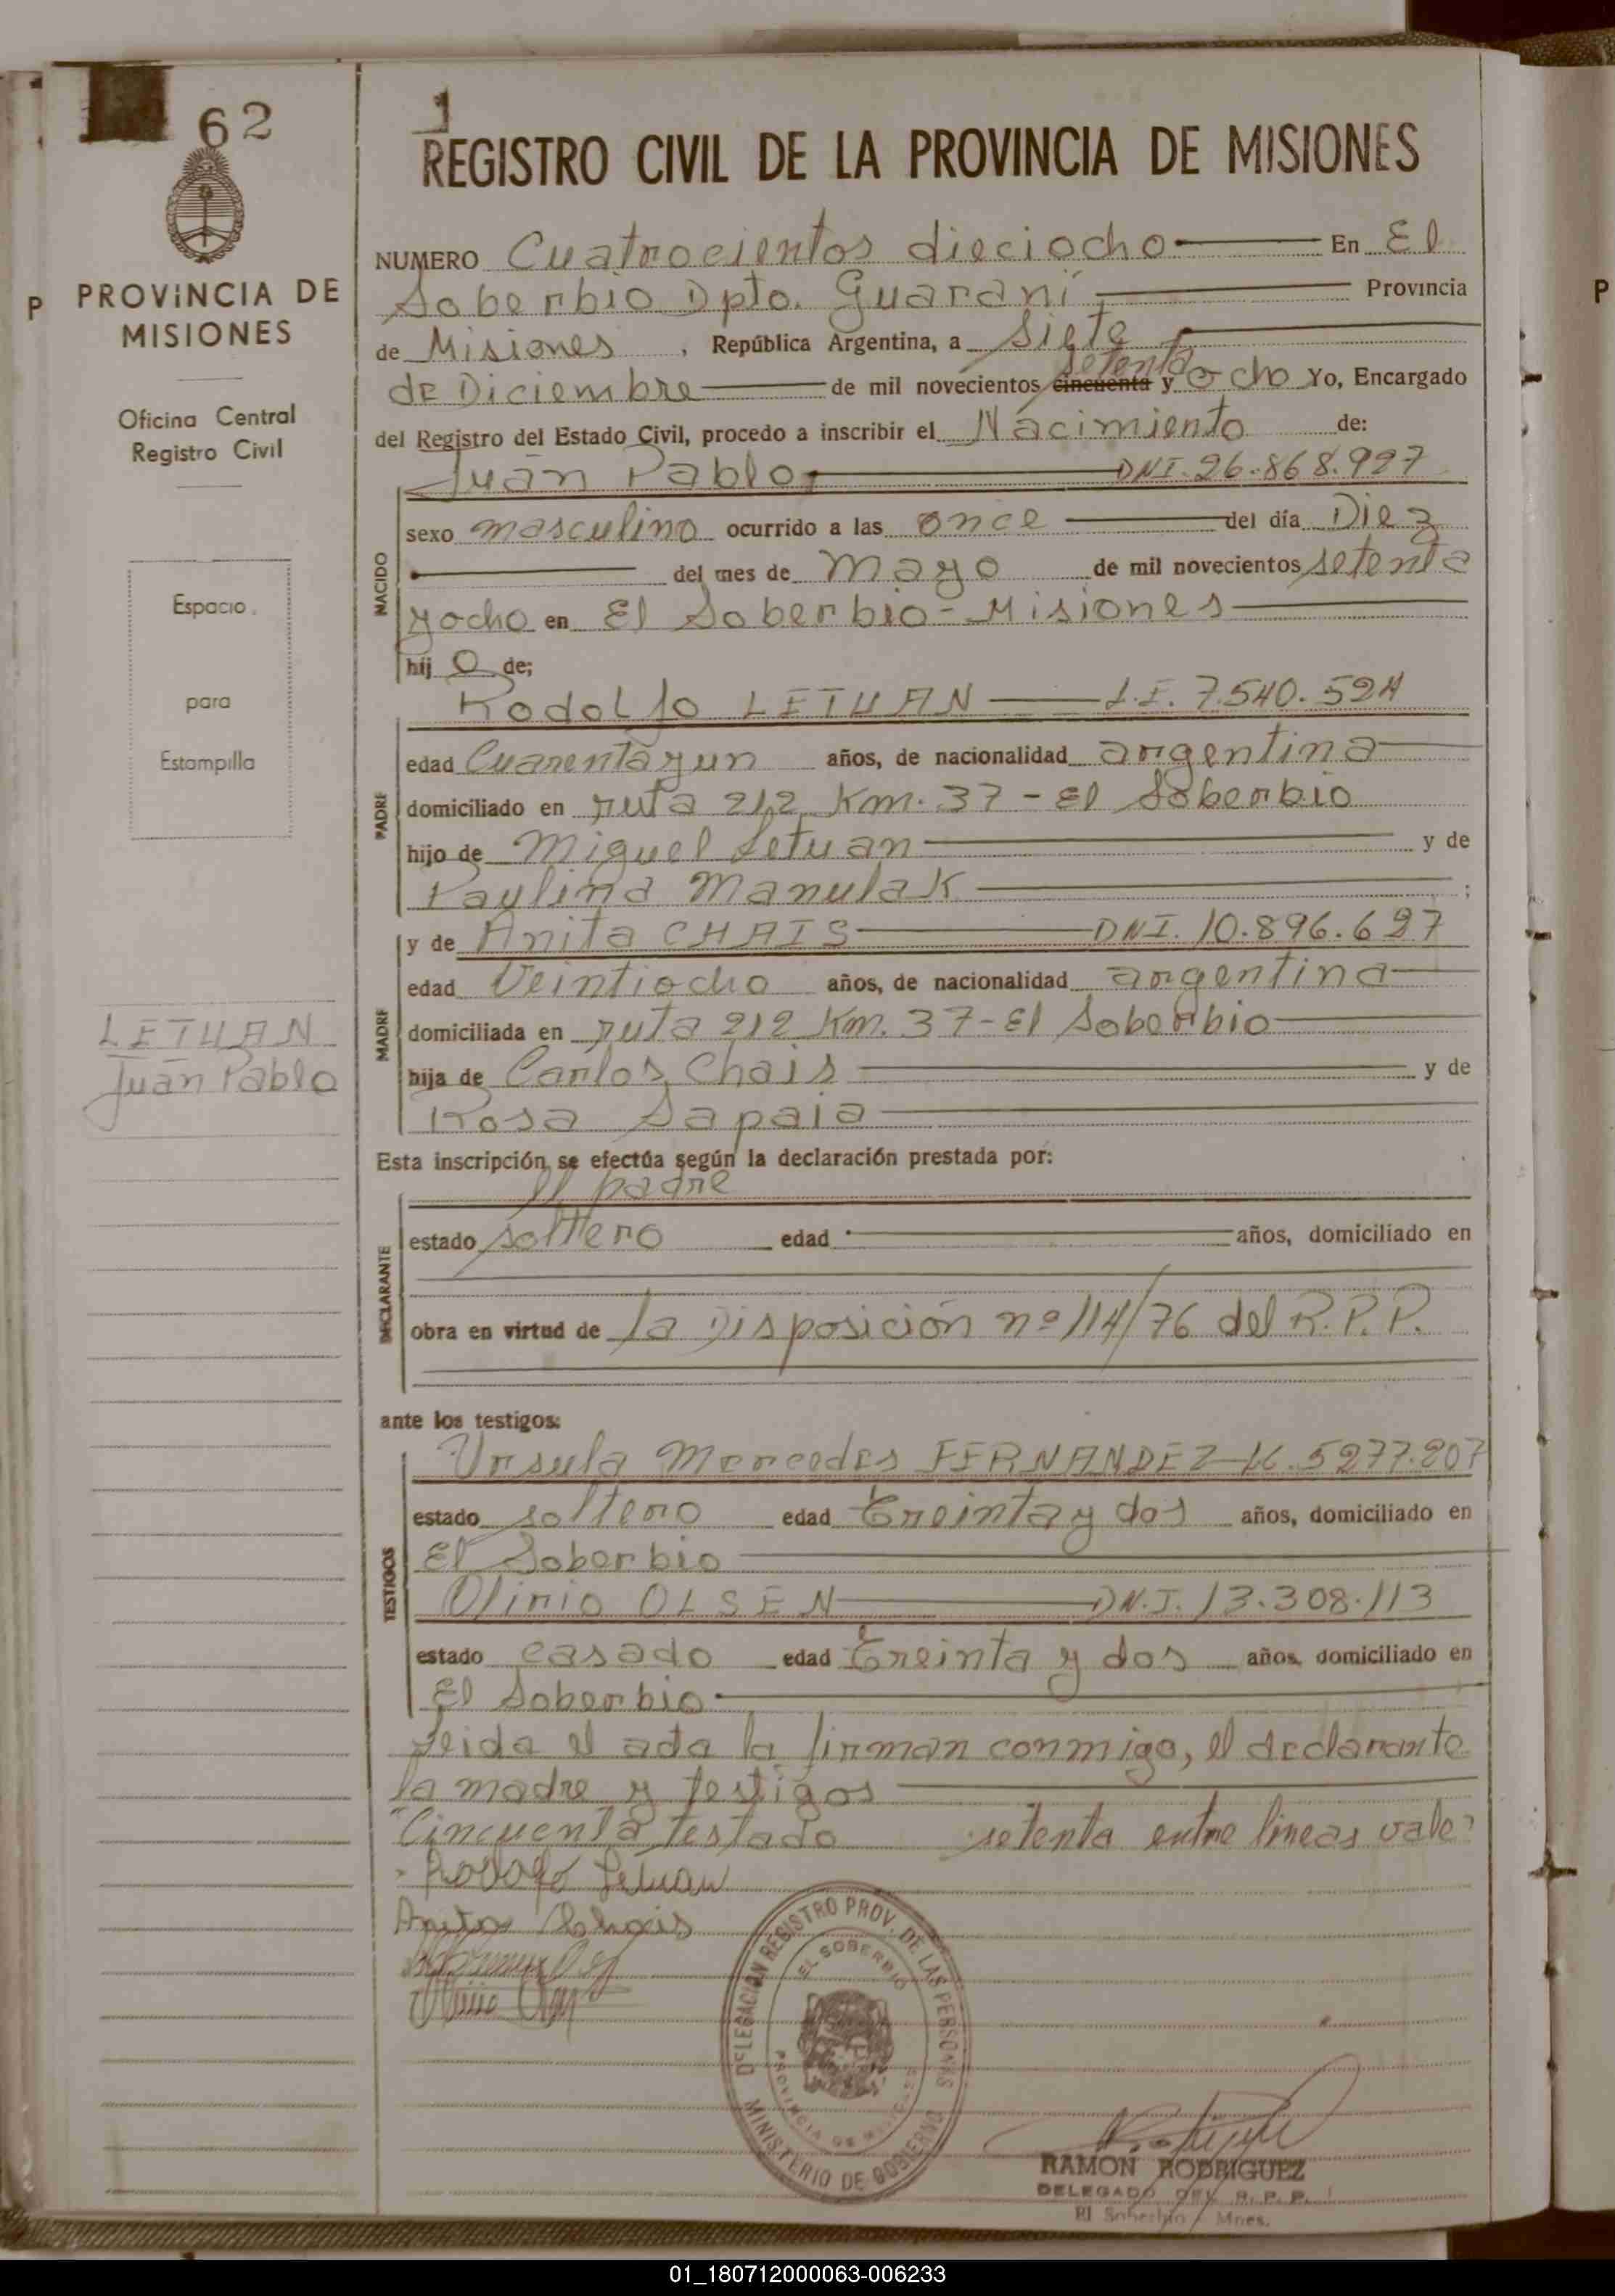 62
P
PROVINCIA DE
MISIONES
Oficina Central
Registro Civil
Espacio
para
Estampilla
LETUAN
Juan Pablo
REGISTRO CIVIL DE LA PROVINCIA DE MISIONES
NUMERO Cuatrocientos dieciocho En El
Soberbio Dpto. Guaraní Provincia
de Misiones, República Argentina, a Siete
setenta
de Diciembre de mil novecientos cincuenta y ocho Yo, Encargado
del Registro del Estado Civil, procedo a inscribir el Nacimiento de:
Juan Pablo DNI. 26.868.927
NACIDO
sexo masculino ocurrido a las once del día Diez
del mes de Mayo de mil novecientos setenta
yocho en El Soberbio - Misiones
hij o de;
PADRE
Rodolfo LETUAN L.E. 7.540.524
edad Cuarentayun años, de nacionalidad argentina
domiciliado en ruta 212 Km. 37 - El Soberbio
hijo de Miguel Letuan y de
Paulina Manulak ;
MADRE
y de Anita CHAIS DNI. 10.896.627
edad Veintiocho años, de nacionalidad argentina
domiciliada en ruta 212 Km. 37 - El Soberbio
hija de Carlos Chais y de
Rosa Sapaia
Esta inscripción se efectúa según la declaración prestada por:
DECLARANTE
El padre
estado soltero edad años, domiciliado en
obra en virtud de la Disposición nº 114/76 del R.P.P.
ante los testigos:
TESTIGOS
Ursula Mercedes FERNANDEZ 5277.207
estado soltero edad Treinta y dos años, domiciliado en
El Soberbio
Olinio OLSEN DN.I. 13.308.113
estado casado edad Treinta y dos años, domiciliado en
El Soberbio
Leida el acta la firman conmigo, el declarante
la madre y testigos
"Cincuenta testado setenta entre lineas vale"
Rodolfo Letuan
Anita Chais
DELEGACION REGISTRO PROV. DE LAS PERSONAS
EL SOBERBIO
PROVINCIA DE MISIONES
MINISTERIO DE GOBIERNO
RAMON RODRIGUEZ
DELEGADO DEL R. P. P.
El Soberbio - Mnes.
P
01_180712000063-006233